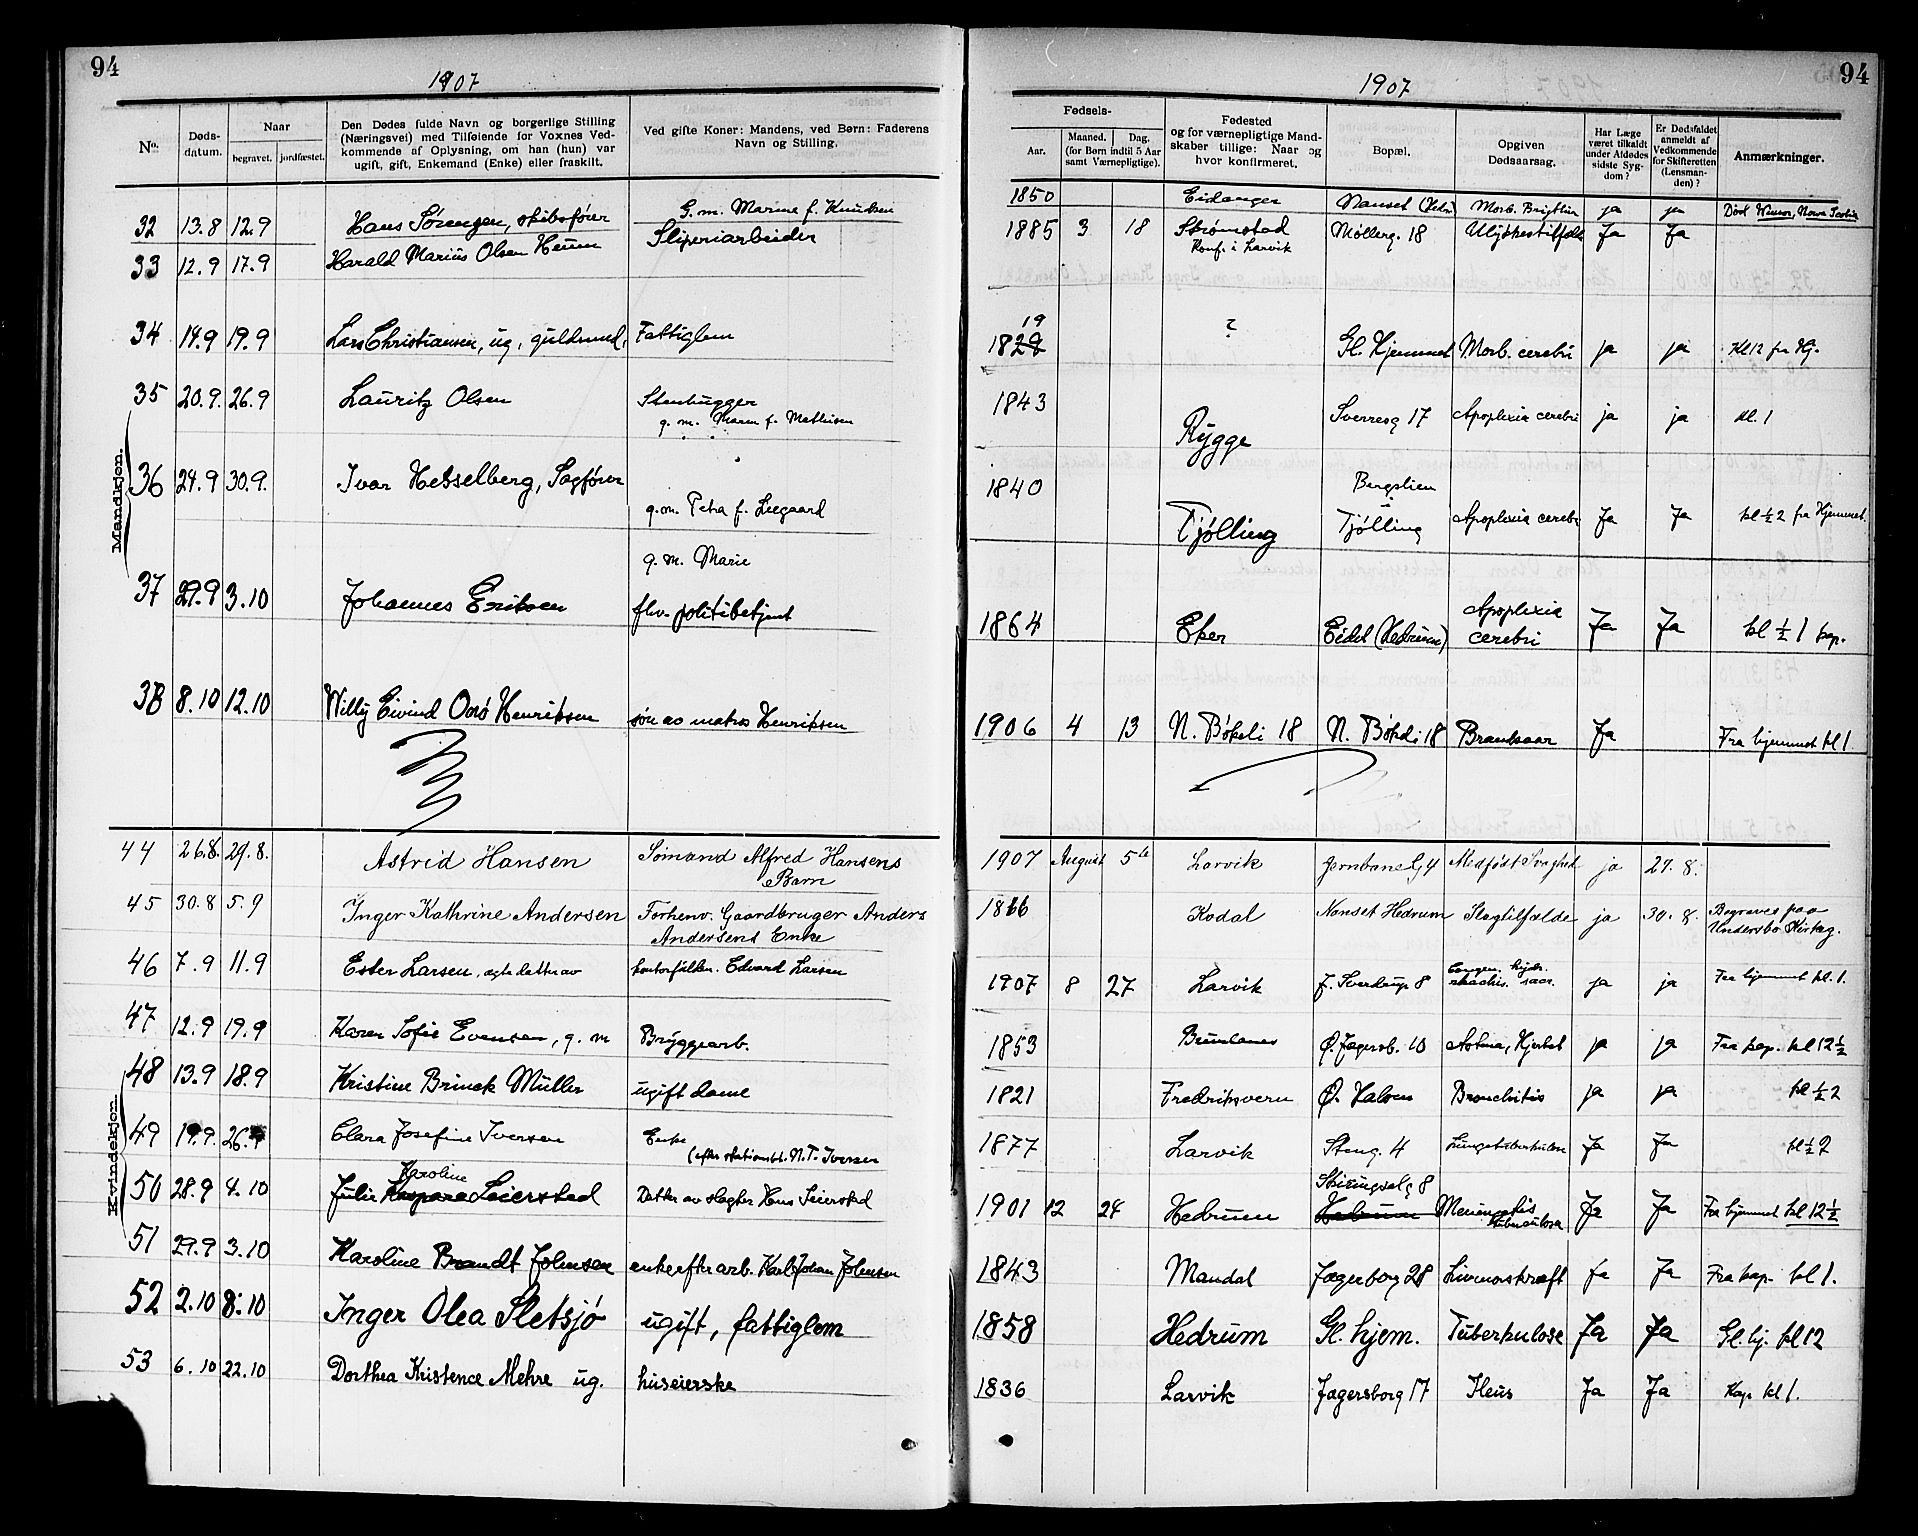 94
1907
No. | Døds-datum. | Naar begravet. | jordfæstet. | Den Dødes fulde Navn og borgerlige Stilling (Næringsvei) med Tilføiende for Voxnes Vedkommende af Oplysning, om han (hun) var ugift, gift, Enkemand (Enke) eller fraskilt. | Ved gifte Koner: Mandens, ved Børn: Faderens Navn og Stilling.
Mandkjøn.
32 | 13.8 | 12.9 | Hans Sørensen, skibsfører | G. m. Marine f. Knudsen
33 | 12.9 | 17.9 | Harald Marius Olsen Heum | Sliperiarbeider
34 | 14.9 | 19.9 | Lars Christiansen, ug., guldsmed, | Fattiglem
35 | 20.9. | 26.9 | Lauritz Olsen | Stenhugger
g. m. Maren f. Mathisen
36 | 24.9 | 30.9. | Ivar Hesselberg, Sagfører
g. m. Petra f. Leegaard
g. m. Marie
37 | 29.9 | 3.10 | Johannes Eriksen | fhv. politibetjent
38 | 8.10 | 12.10 | Willy Eivind Onsø Henriksen | søn av matros Henriksen
Kvindekjøn.
44 | 26.8. | 29.8. | Astrid Hansen | Sømand Alfred Hansens
Barn
45 | 30.8 | 5.9 | Inger Kathrine Andersen | Forhenv. Gaardbruger Anders
Andersens Enke
46 | 7.9 | 11.9 | Ester Larsen, ægte datter av | kontorfuldm. Edvard Larsen
47 | 12.9 | 19.9 | Karen Sofie Evensen, g. m | Bryggearb.
48 | 13.9 | 18.9 | Kristine Brinck Müller | ugift dame
49 | 19.9. | 26.9 | Clara Josefine Iversen | Enke
(efter stationsbt. N. T. Iversen
Karoline
50 | 28.9 | 4.10 | Julie Kaspara Seierstad | Datter av slagter Hans Seierstad
51 | 29.9 | 3.10 | Karoline Brandt Johnsen | enke efter arb. Karl Johan Johnsen
52 | 2.10 | 8.10 | Inger Olea Sletsjø | ugift, fattiglem
53 | 6.10 | 22.10 | Dorthea Kristence Mehre ug. | huseierske
94
1907
Fødsels- Aar. | Maaned. | Dag. (for Børn indtil 5 Aar samt Værnepligtige). | Fødested og for værnepligtige Mandskaber tillige: Naar og hvor konfirmeret. | Bopæl. | Opgiven Dødsaarsag. | Har Læge været tilkaldt under Afdødes sidste Sygdom? | Er Dødsfaldet anmeldt af Vedkommende for Skifteretten (Lensmanden)? | Anmærkninger.
1850 | Eidanger | Nanset (Hedr) | Morb. Brightii | ja | ja | Død Winsor, Nova Scotia
1885 | 3 | 18 | Strømstad | Møllerg. 18 | Ulykkestilfæld | Ja | Ja
Konf. i Larvik
19
1828 | ? | Gl. Hjemmet | Morb. cerebri | ja | ja | Kl 12 fra Hj.
1843 | Rygge | Sverresg 17 | Apoplexia cerebri | ja | ja | kl. 1
1840 | Tjølling | Bergslien
Tjølling | Apoplexia cerebri | Ja | Ja | kl ½2 fra Hjemmet
1864 | Eker | Eidet (Hedrum) | Apoplexia
cerebri | Ja | Ja | kl ½ 1 kap.
1906 | 4 | 13 | N. Bøkeli 18 | N. Bøkeli 18 | Brandsaar | Ja | Fra hjemmet kl 1.
1907 | August | 5te | Larvik | Jernbaneg 4 | Medfødt Svaghed | ja | 27.8.
1816 | Kodal | Nanset Hedrum | Slagtilfælde | ja | 30.8. | Begraves paa
Undersbo Kirkeg.
1907 | 8 | 27 | Larvik | J. Sverdrup 8 | ja | ja | Fra hjemmet kl. 1.
1853 | Brunlanes | Ø. Jagersb. 10 | Astma, Hjertet | ja | ja | Fra kap. kl 12½
1821 | Fredriksvern | Ø. Halsen | Bronchitis | ja | ja | kl ½2
1877 | Larvik | Steng. 4 | Lungetuberkulose | Ja | Ja | kl ½2
1901 | 12 | 24 | Hedrum | Skiringsalg 8
Hedrum | Meningitis
tuberculosa | Ja | Ja | Fra hjemmet kl 12½
1843 | Mandal | Jagerborg 28 | Livmorskræft | ja | Ja | Fra kap. kl 1.
1858 | Hedrum | Gl. hjem. | Tuberkulose | Ja | Ja | Gl. hj. kl 12
1836 | Larvik | Jagersborg 17 | Ileus | Ja | Ja | Kap kl 1.